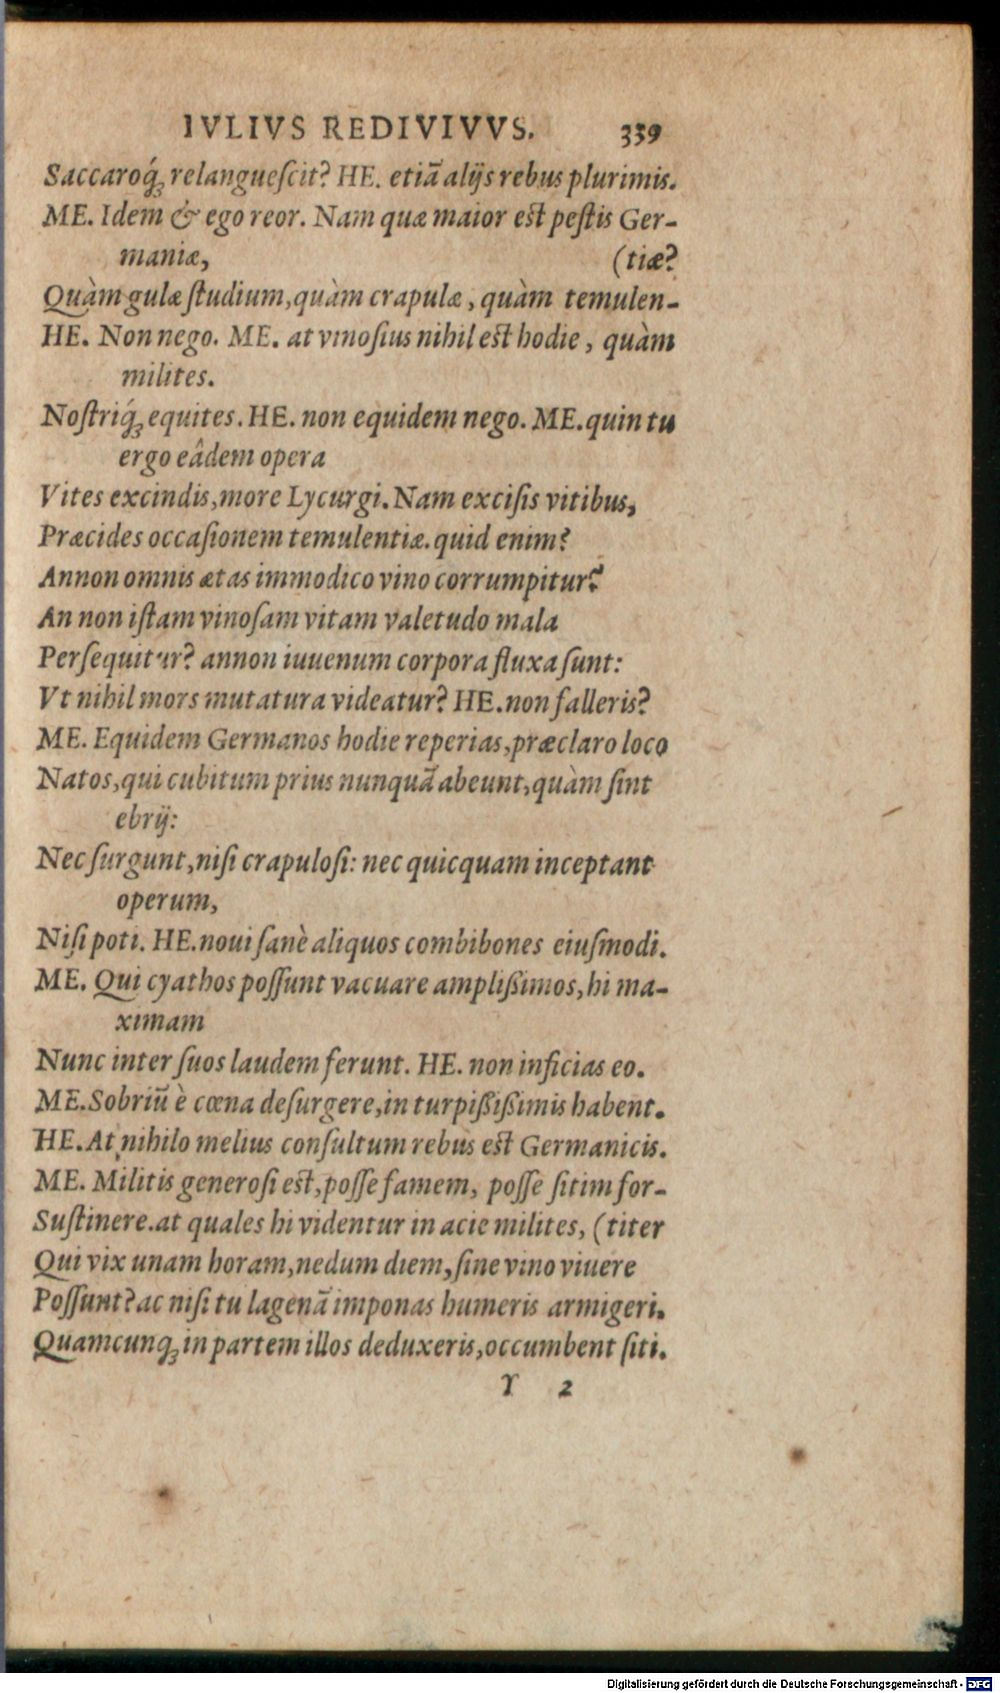 IVLIVS REDIVIVVS. 339
Saccaroq́ꝫ relanguescit? HE. etiã alijs rebus plurimis.
ME. Idem & ego reor. Nam quæ maior est pestis Ger-
maniæ, (tiæ?
Quàm gulæ studium, quàm crapulæ, quàm temulen-
HE. Non nego. ME. at vinosius nihil est hodie, quàm
milites.
Nostriq́ꝫ equites. HE. non equidem nego. ME. quin tu
ergo eâdem opera
Vites excindis, more Lycurgi. Nam excisis vitibus,
Præcides occasionem temulentiæ. quid enim?
Annon omnis ætas immodico vino corrumpitur?
An non istam vinosam vitam valetudo mala
Persequitur? annon iuuenum corpora fluxa sunt:
Vt nihil mors mutatura videatur? HE. non falleris?
ME. Equidem Germanos hodie reperias, præclaro loco
Natos, qui cubitum prius nunquã abeunt, quàm sint
ebrij:
Nec surgunt, nisi crapulosi: nec quicquam inceptant
operum,
Nisi poti. HE. noui sanè aliquos combibones eiusmodi.
ME. Qui cyathos possunt vacuare amplißimos, hi ma-
ximam
Nunc inter suos laudem ferunt. HE. non inficias eo.
ME. Sobriũ è cœna desurgere, in turpißißimis habent.
HE. At nihilo melius consultum rebus est Germanicis.
ME. Militis generosi est, posse famem, posse sitim for-
Sustinere. at quales hi videntur in acie milites, (titer
Qui vix unam horam, nedum diem, sine vino viuere
Possunt? ac nisi tu lagenã imponas humeris armigeri.
Quamcunqꝫ in partem illos deduxeris, occumbent siti.
Y 2
Digitalisierung gefördert durch die Deutsche Forschungsgemeinschaft - DFG